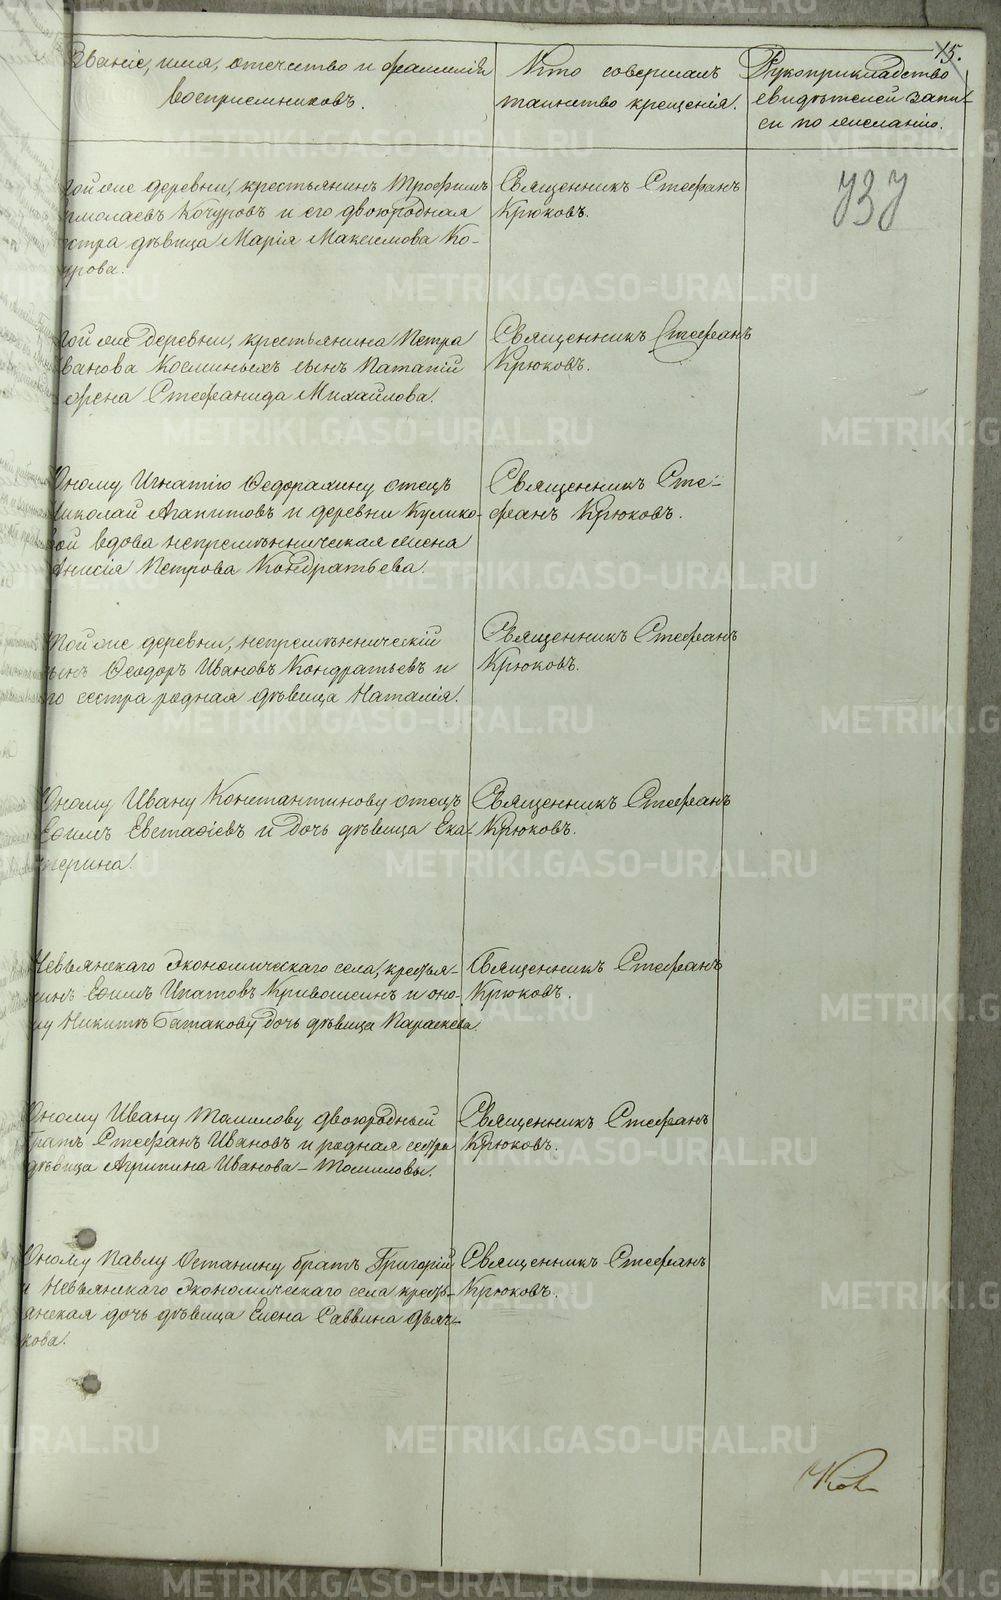 15.
Званіе, имя, отчество и фамилія
восприемниковъ.
Кто совершалъ
таинство крещенія.
Рукоприкладство
свидѣтелей запи-
си по желанію.
737
той же деревни, крестьянинъ Трофимъ
рмолаевъ Кочуровъ и его двоюродная
стра дѣвица Марія Максимова Ко-
чурова.
Священникъ Стефанъ
Крюковъ.
той же деревни, крестьянина Петра
ванова Косминыхъ сынъ Ипатій
Стефанида Михайлова.
Священникъ Стефанъ
Крюковъ.
Оному Игнатію Ѳедорахину отецъ
Николай Агапитовъ и деревни Кулико-
вой вдова непремѣнническая жена
Анисія Петрова Кондратьева.
Священникъ Сте-
фанъ Крюковъ.
Той же деревни, непремѣнническій
сынъ Ѳеодоръ Ивановъ Кондратьевъ и
го сестра родная дѣвица Наталія.
Священникъ Стефанъ
Крюковъ.
Оному Ивану Константинову отецъ
Ефимъ Евстафіевъ и дочь дѣвица Ека-
терина.
Священникъ Стефанъ
Крюковъ.
Невьянскаго Экономическаго села, крестья-
нинъ Ефимъ Ипатовъ Кривошеинъ и оно-
му Никитѣ Батакову дочь дѣвица Параскева.
Священникъ Стефанъ
Крюковъ.
Оному Ивану Томилову двоюродный
братъ Стефанъ Ивановъ и родная сестра
дѣвица Агрипина Иванова - Томиловы.
Священникъ Стефанъ
Крюковъ.
Оному Павлу Останину братъ Григорій
и Невьянскаго Экономическаго села кресть-
янская дочь дѣвица Елена Саввина Дьяч-
кова.
Священникъ Стефанъ
Крюковъ.
METRIKI.GASO-URAL.RU